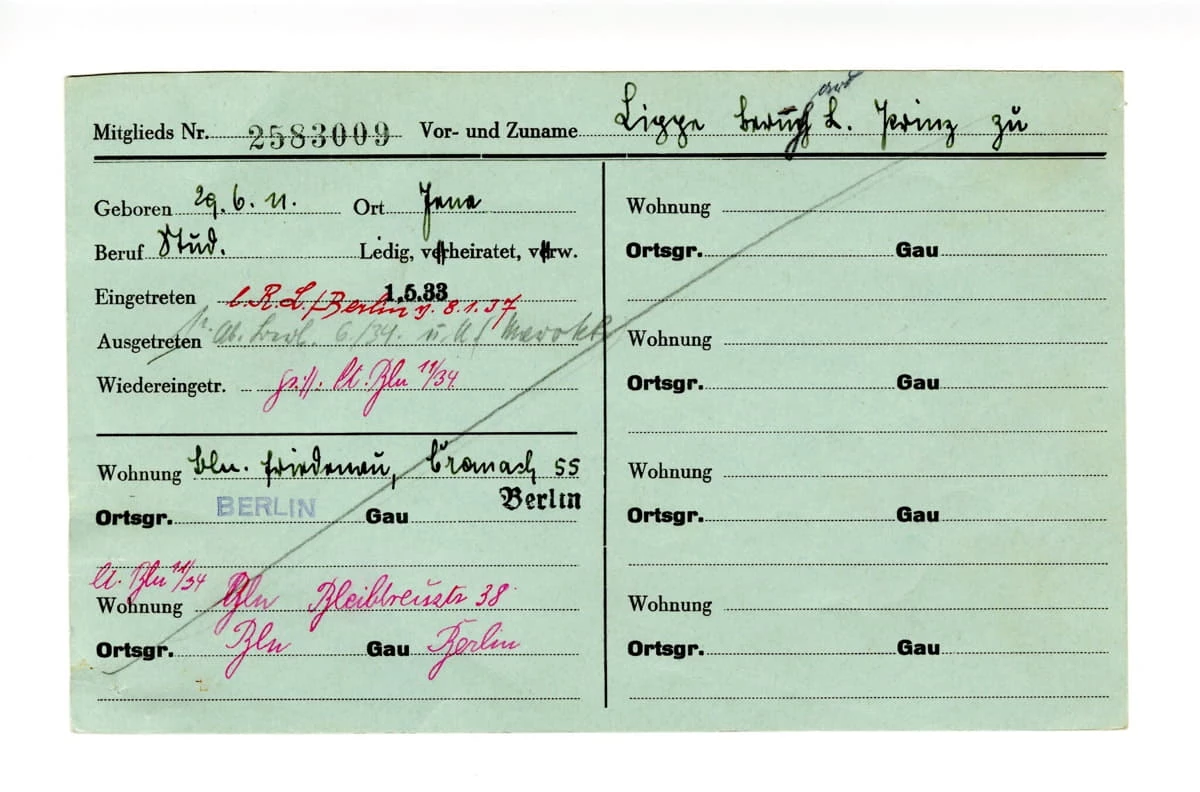 ard
Mitglieds Nr. 2583009 Vor- und Zuname Lippe Bernh L. Prinz zu
Geboren 29. 6. 11. Ort Jena
Beruf Stud. Ledig, verheiratet, verw.
Eingetreten 1.5.33
l. R. L./Berlin v. 8.1.37
Ausgetreten 6/34. u. Uf
Wiedereingetr. lt. Bln 11/34
Wohnung Bln. Friedenau, 55
Ortsgr. BERLIN Gau Berlin
lt. Bln 11/34
Wohnung Bln Bleibtreustr 38
Ortsgr. Bln Gau Berlin
Wohnung
Ortsgr. Gau
Wohnung
Ortsgr. Gau
Wohnung
Ortsgr. Gau
Wohnung
Ortsgr. Gau